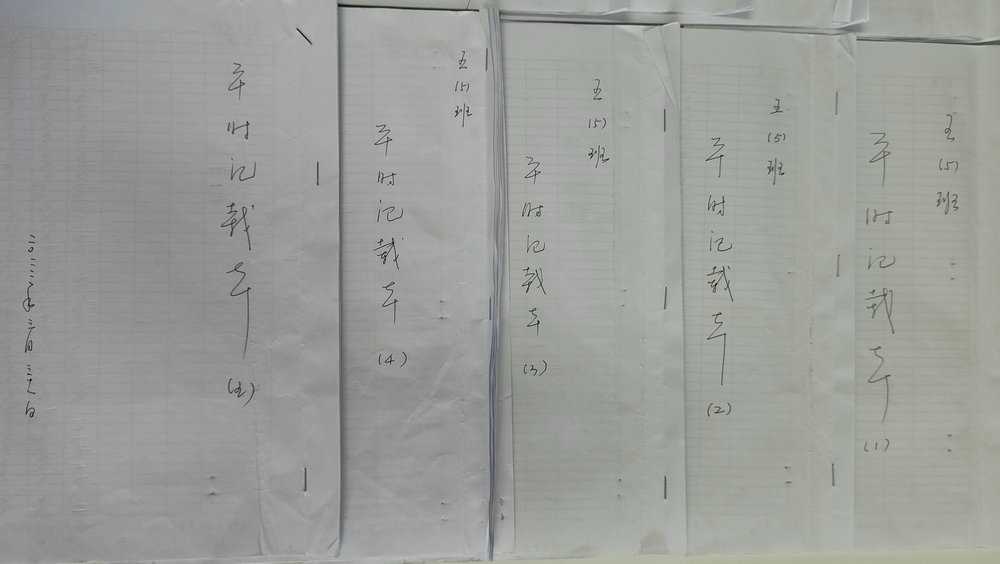 五(5)班
平时记载本(1)
五(5)班
平时记载本(2)
五(5)班
平时记载本(3)
五(5)班
平时记载本(4)
平时记载本(五)